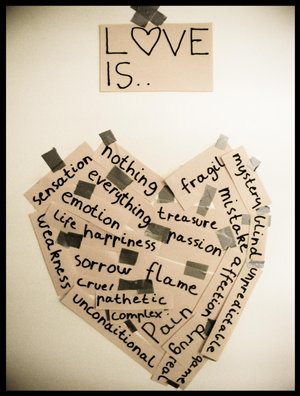 L♡VE
IS..
sensation
nothing
everything
emotion
life
happiness
treasure
passion
fragil
mystery
mistake
blind
weakness
sorrow
flame
affection
unpredictable
cruel
pathetic
complex
pain
unconditional
drug
real
game